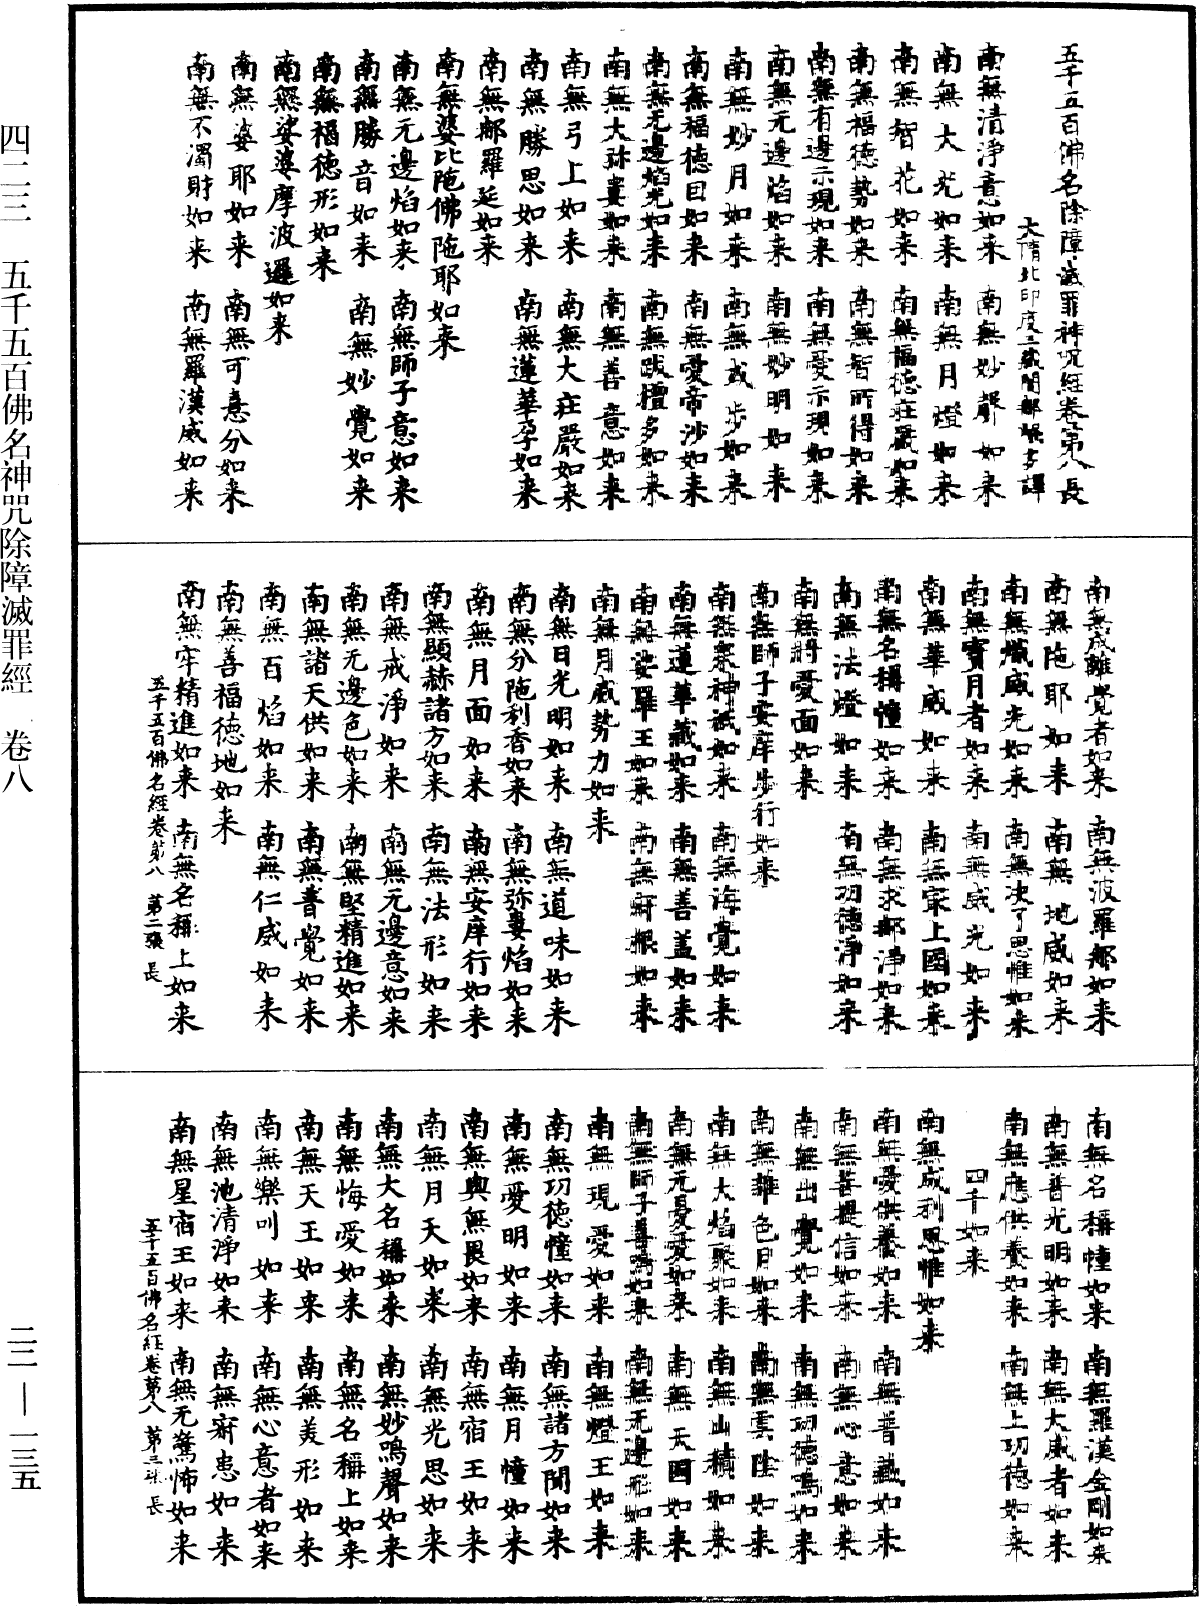 五千五百佛名除障滅罪神呪經卷第八 長
大隋北印度三藏闍那崛多譯
南無清淨意如来 南無妙聲如来
南無大光如来 南無月燈如来
南無智花如来 南無福德莊嚴如来
南無福德勢如来 南無智所得如来
南無有邊示現如来 南無愛示現如来
南無无邊焰如来 南無妙明如来
南無妙月如来 南無威步如来
南無福德目如来 南無愛帝沙如来
南無无邊焰光如来 南無跋檀多如来
南無大弥婁如来 南無善意如来
南無弓上如来 南無大莊嚴如来
南無勝思如来 南無蓮華孕如来
南無郍羅延如来
南無婆比陁佛陁耶如来
南無无邊焰如来 南無師子意如来
南無勝音如来 南無妙覺如来
南無福德形如来
南無娑婆摩波邏如来
南無婆耶如来 南無可意分如来
南無不濁財如来 南無羅漢威如来
南無威離覺者如来 南無波羅郍如来
南無陁耶如来 南無地威如来
南無熾威光如来 南無决了思惟如来
南無寳月者如来 南無威光如来
南無華威如来 南無最上國如来
南無名稱憧如来 南無求郍淨如来
南無法燈如来 南無功德淨如来
南無將愛面如来
南無師子安庠步行如来
南無衆神祇如来 南無海覺如来
南無蓮華藏如来 南無善盖如来
南無娑羅王如来 南無寂根如来
南無月威勢力如来
南無日光明如来 南無道味如来
南無分陁利香如来 南無弥婁焰如来
南無月面如来 南無安庠行如来
南無顯赫諸方如来 南無法形如来
南無戒淨如来 南無无邊意如来
南無无邊色如来 南無堅精進如来
南無諸天供如来 南無普覺如来
南無百焰如来 南無仁威如来
南無善福德地如来
南無牢精進如来 南無名稱上如来
五千五百佛名經卷第八 第二張 長
南無名稱憧如来 南無羅漢金剛如来
南無普光明如来 南無大威者如来
南無應供養如来 南無上功德如来
四千如来
南無成利思惟如来
南無愛供養如来 南無普藏如来
南無菩提信如来 南無心意如来
南無出覺如来 南無功德鳴如来
南無雜色日如来 南無雲陰如来
南無大焰聚如来 南無山積如来
南無无憂愛如来 南無天國如来
南無師子善鳴如来 南無无邊形如来
南無現愛如来 南無燈王如来
南無功德憧如来 南無諸方聞如来
南無愛明如来 南無月憧如来
南無與無畏如来 南無宿王如来
南無月天如来 南無光思如来
南無大名稱如来 南無妙鳴聲如来
南無悔愛如来 南無名稱上如来
南無天王如来 南無美形如来
南無樂叫如来 南無心意者如来
南無池清淨如来 南無寂患如来
南無星宿王如来 南無无驚怖如来
五千五百佛名經卷第八 第三張 長
四二三 五千五百佛名神咒除障滅罪經 卷八
二二—一三五